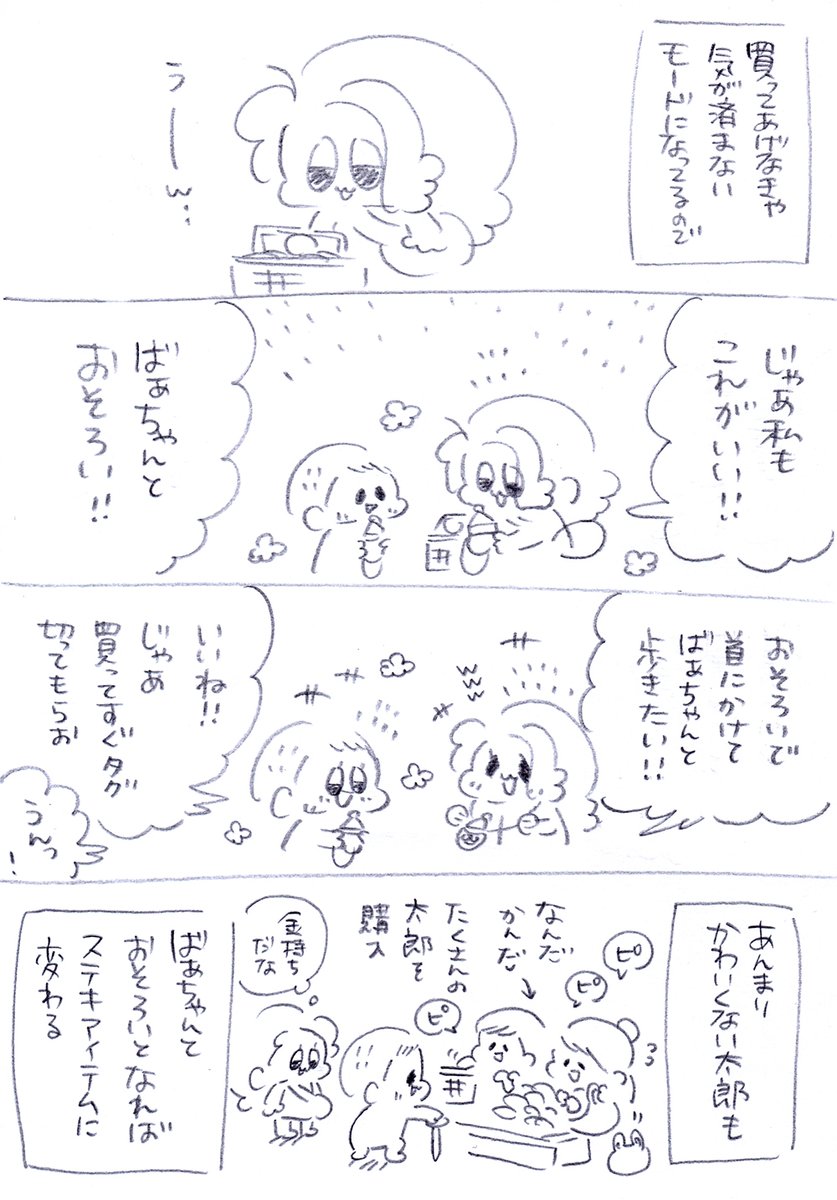 買ってあげなきゃ
気が済まない
モードになってるので
うーーw…
じゃあ私も
これがいい!!
ばぁちゃんと
おそろい!!
おそろいで
首にかけて
ばぁちゃんと
歩きたい!!
いいね!!
じゃあ
買ってすぐタグ
切ってもらお
うんっ!
あんまり
かわいくない太郎も
ピ
ピ
ピ
なんだ
かんだ
たくさんの
太郎を
購入
金持ち
だな
ばぁちゃんて
おそろいとなれば
ステキアイテムに
変わる